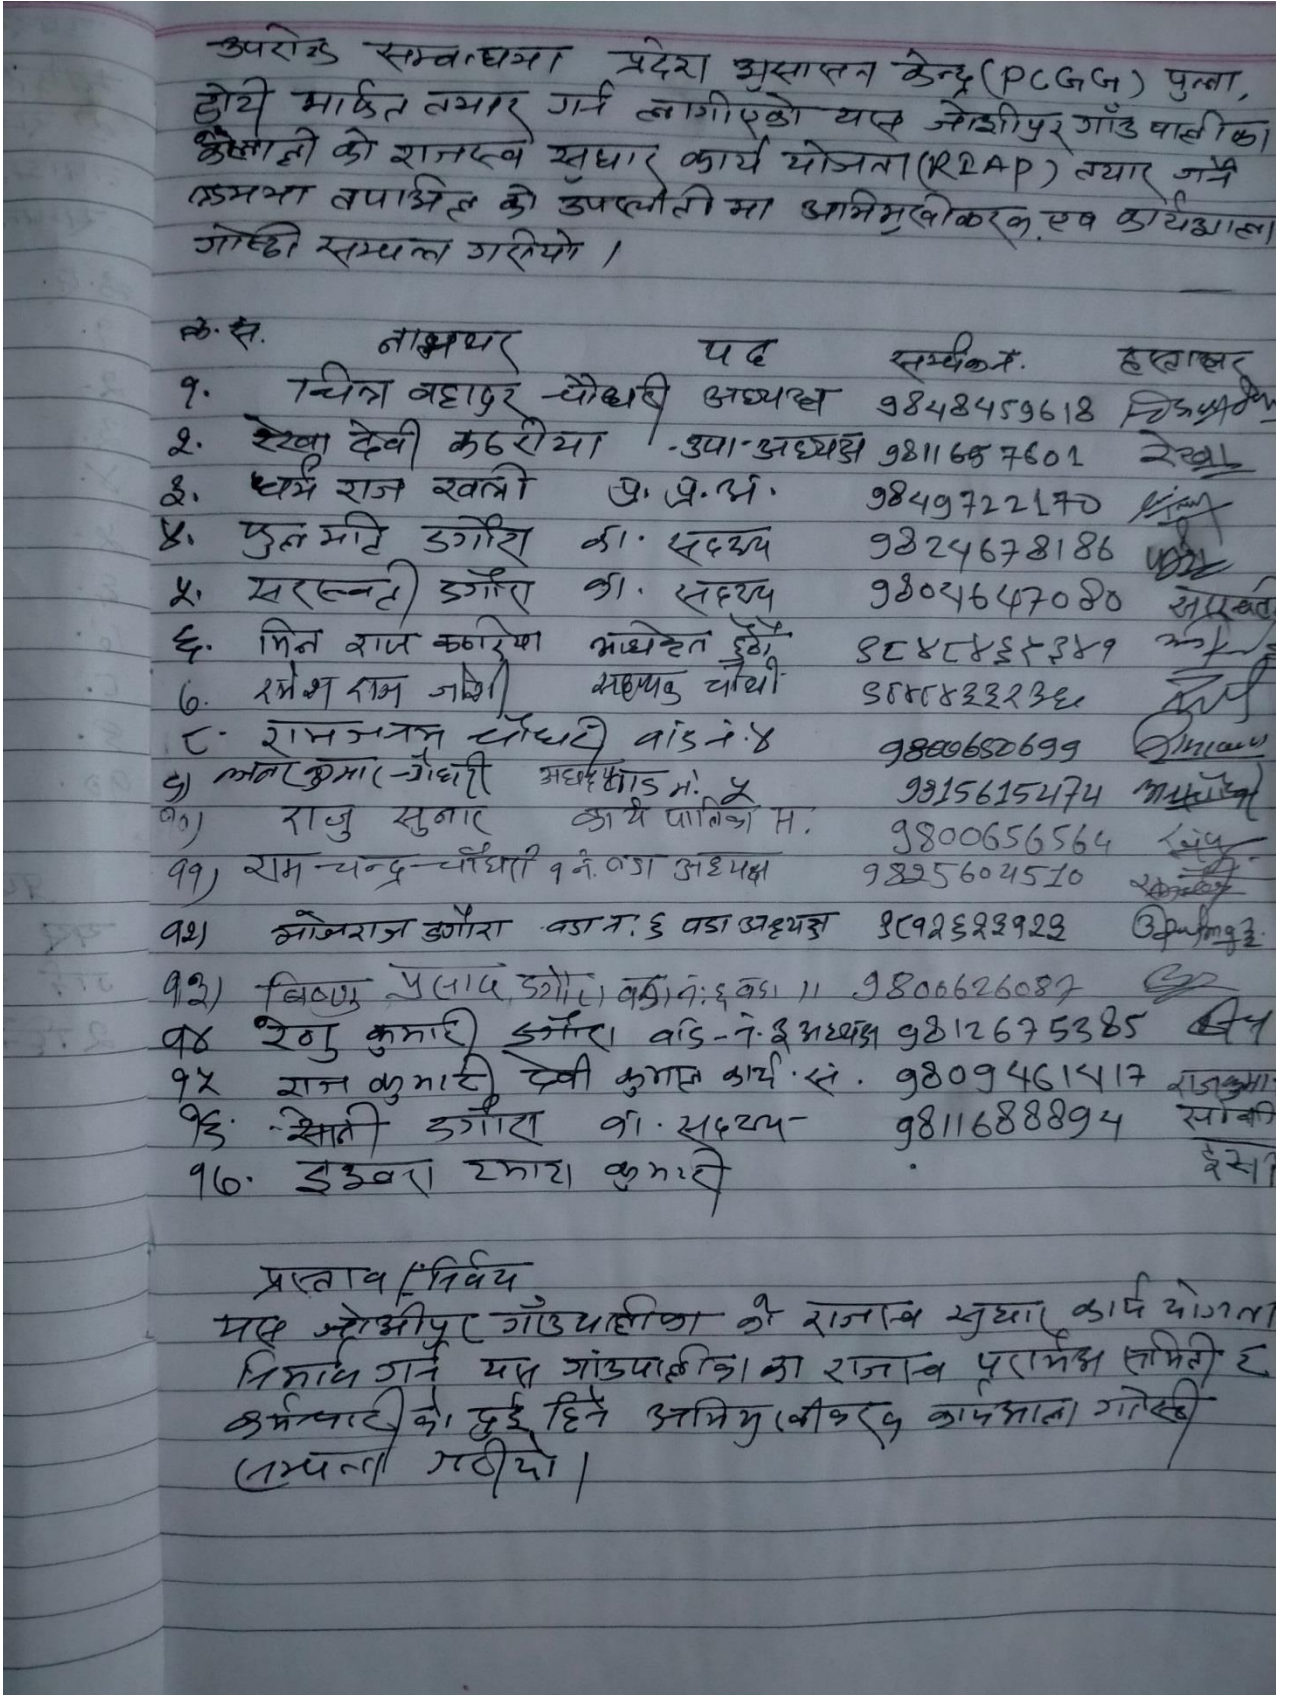 उपरोक्त सम्बन्धमा प्रदेश सुसासन केन्द्र (PCGG) पुन्ना,
डोटी मार्फत तयार गर्न लागीएको यस जोशीपुर गाँउ पालीका
कैलाली को राजस्व सुधार कार्य योजना (RIAP) तयार गर्ने
क्रममा तपाशिल को उपस्थीती मा अभिमुखीकरण एव कार्यशाला
गोष्ठी सम्पन्न गरीयो ।
क्र. स. नामथर पद सम्पर्क नं. हस्ताक्षर
१. चित्र बहादुर चौधरी अध्यक्ष 9848459618
२. रेखा देवी कठरीया उपा-अध्यक्ष 9811657601 रेखा
३. धर्म राज खत्री प्र. प्र. अ. 9849722170
४. फुलमति डगौरा का. सदस्य 9824678186
५. सरस्वती डगौरा का. सदस्य 9804647080 सरस्वती
६. मिन राज कठरिया अधिकृत छैठौ ९८४८४६५३४१
७. रमेश राम जोशी सहायक चौथौ ९८४८४३३२३६
८. रामजनम चौधरी वार्ड नं. ४ 9800650699
९) कुमार चौधरी अध्यक्ष वार्ड नं. ५ 9815615474
१०) राजु सुनार कार्य पालिका स. 9800656564
११) राम चन्द्र चौधरी १ नं. वडा अध्यक्ष 9825604510
१२) भोजराज डगौरा वडा नं: ६ वडा अध्यक्ष ९८१२६२३१२३
१३) बिष्णु प्रसाद डगौरा वडा नं: ६ वडा ॥ 9800626087
१४ रेणु कुमारी डगौरा वार्ड-नं. ३ अध्यक्ष 9812675385
१५ राज कुमारी देवी कुमाल कार्य. सं. 9809461417 राजकुमा
१६. सोनी डगौरा का. सदस्य 9811688894 सोनी
१७. इश्वरा रमारा कुमारी
प्रस्ताव / निर्णय
यस जोशीपुर गाँउपालीका को राजाव सुधार कार्य योजना
निर्माण गर्न यस गांउपालीका का राजाव परामर्श समिती र
कर्मचारी को दुई दिने अभिमुखीकरण कार्यशाला गोष्ठी
सम्पन्न गरीयो ।